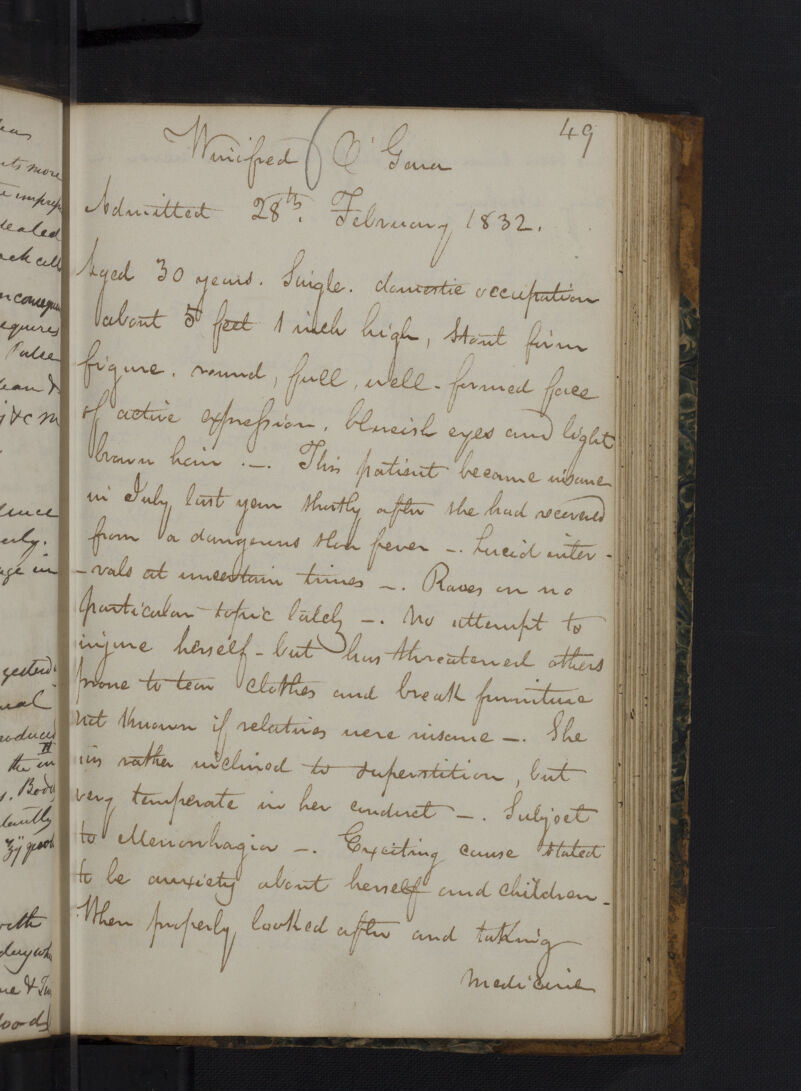 49
Winifred O'Gara
Admitted 28th. February 1832.
Aged 30 years. Single. domestic occupation
about 5 feet 1 inch high, stout firm
figure. round, full, well-formed face
of active expression. blueish eyes and light
brown hair. —. This patient became insane
in July last year shortly after she had recovered
from a dangerous slow fever —. Lucid inter-
-vals at uncertain times —. Raves on no
particular topic lately —. No attempt to
injure herself - but has threatened others
prone to tear clothes and break furniture
not known if relatives were insane —. She
is rather inclined to superstition, but
very temperate in her conduct —. Subject
to Menorrhagia —. Exciting cause stated
to be anxiety about herself and children -
When properly looked after and taking
medicine
ts more
dealed
equires
Pulse
age in
the
Body
with